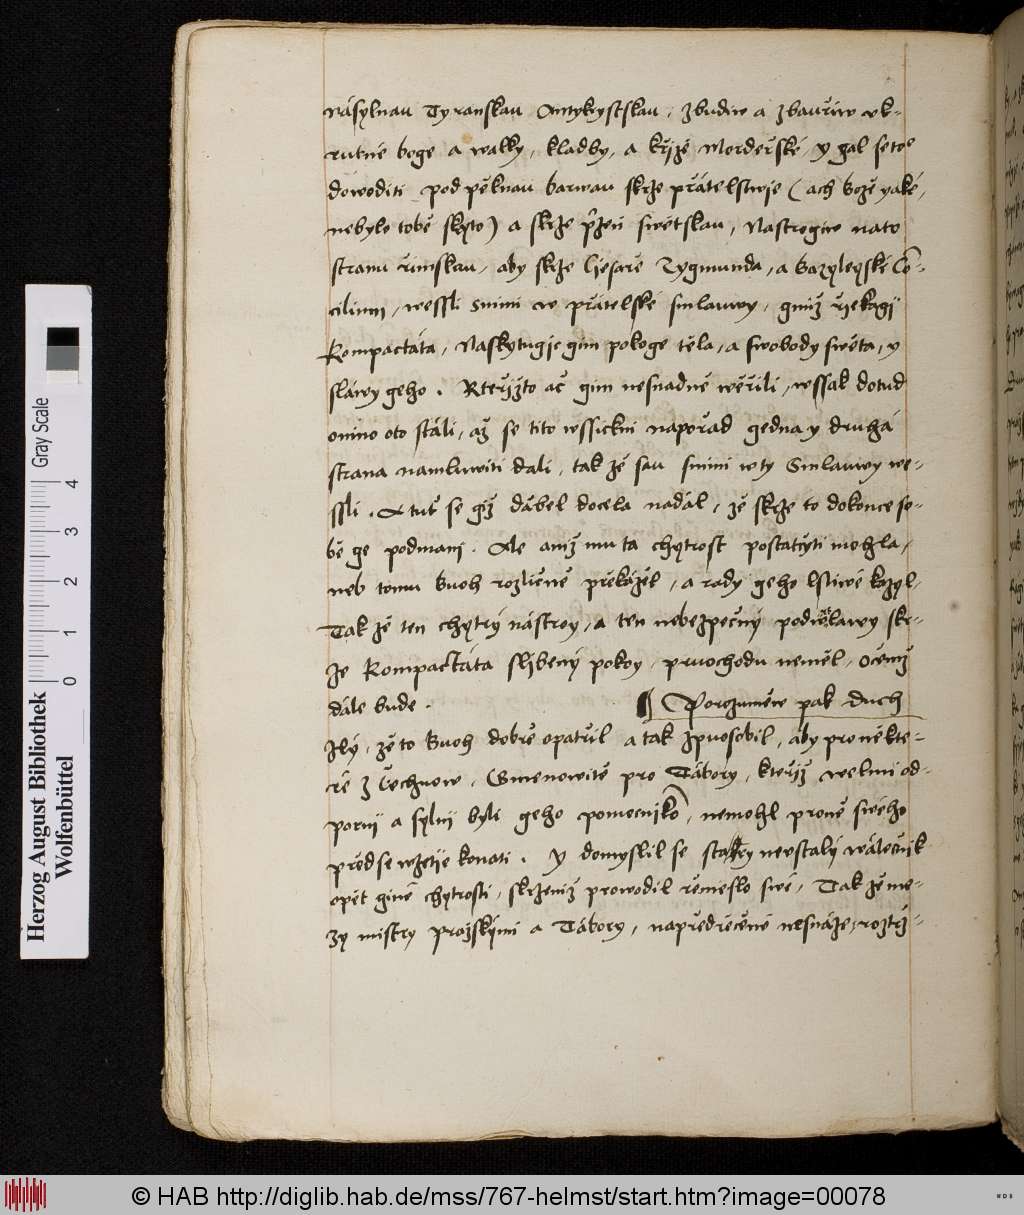 násylnau Tyranskau Antykrystskau, zbudiw a zbauřiw vk-
rutné boge a walky, kladby, a křjžé Morderské, y gal se to°
dowoditi pod pěknau barwau skrze přátelstwie (ach Božě yaké,
nebylo tobě skryto) a skrze přjzeň swětskau, Nastrogiw nato
stranu řimskau, aby skrze Cjesaře Zygmunda, a Bazyleyské Co-
cilium, wessli snimi w přátelské smlauwy, gimiž řjekagij
Kompactáta, Naskytugje gim pokoge těla, a swobody swěta, y
sláwy geho. Kteřjžto ač gim nesnadně wěřili, wssak dotud
onino oto stáli, až se tito wssickni napořad gedna y druhá
strana namluwiti dali, tak žé sau snimi wty Smlauwy we-
ssli. A tuť se giž dábel docela nadál, žé skrze to dokonce so-
bě ge podmani. Ale aniž mu ta chytrost postatčyti mohla,
neb tomu Buoh rozličně překážél, a rady geho lstiwé kazyl.
Tak žé ten chytrý nástroy, a ten nebezpečný podwělawy skr-
ze Kompactáta sljbený pokoy, pruochodu neměl, očemž
dále bude. ¶ Porozuměw pak Duch
Zlý, žé to Buoh dobře opatřil a tak zpuosobil, aby pro někte-
ré z Čechuow, Gmenowitě pro Tábory, kteřjž welmi od-
pornij a sylnij byli geho pomocniko, nemohl prowé swého
předse wzetjie konati. Y domyslil se starý newstalý wálečnjk
opět giné chytrosti, skrzeniž prowodil řemeslo swé, Tak žé me-
zy mistry Pražskými a Tábory, napředřečené nesnáze, roztrž-
Herzog August Bibliothek
Wolfenbüttel
0 1 2 3 4
Gray Scale
© HAB http://diglib.hab.de/mss/767-helmst/start.htm?image=00078